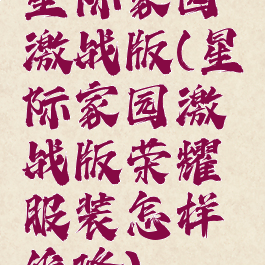 星际家园
激战版(星
际家园激
战版荣耀
服装怎样